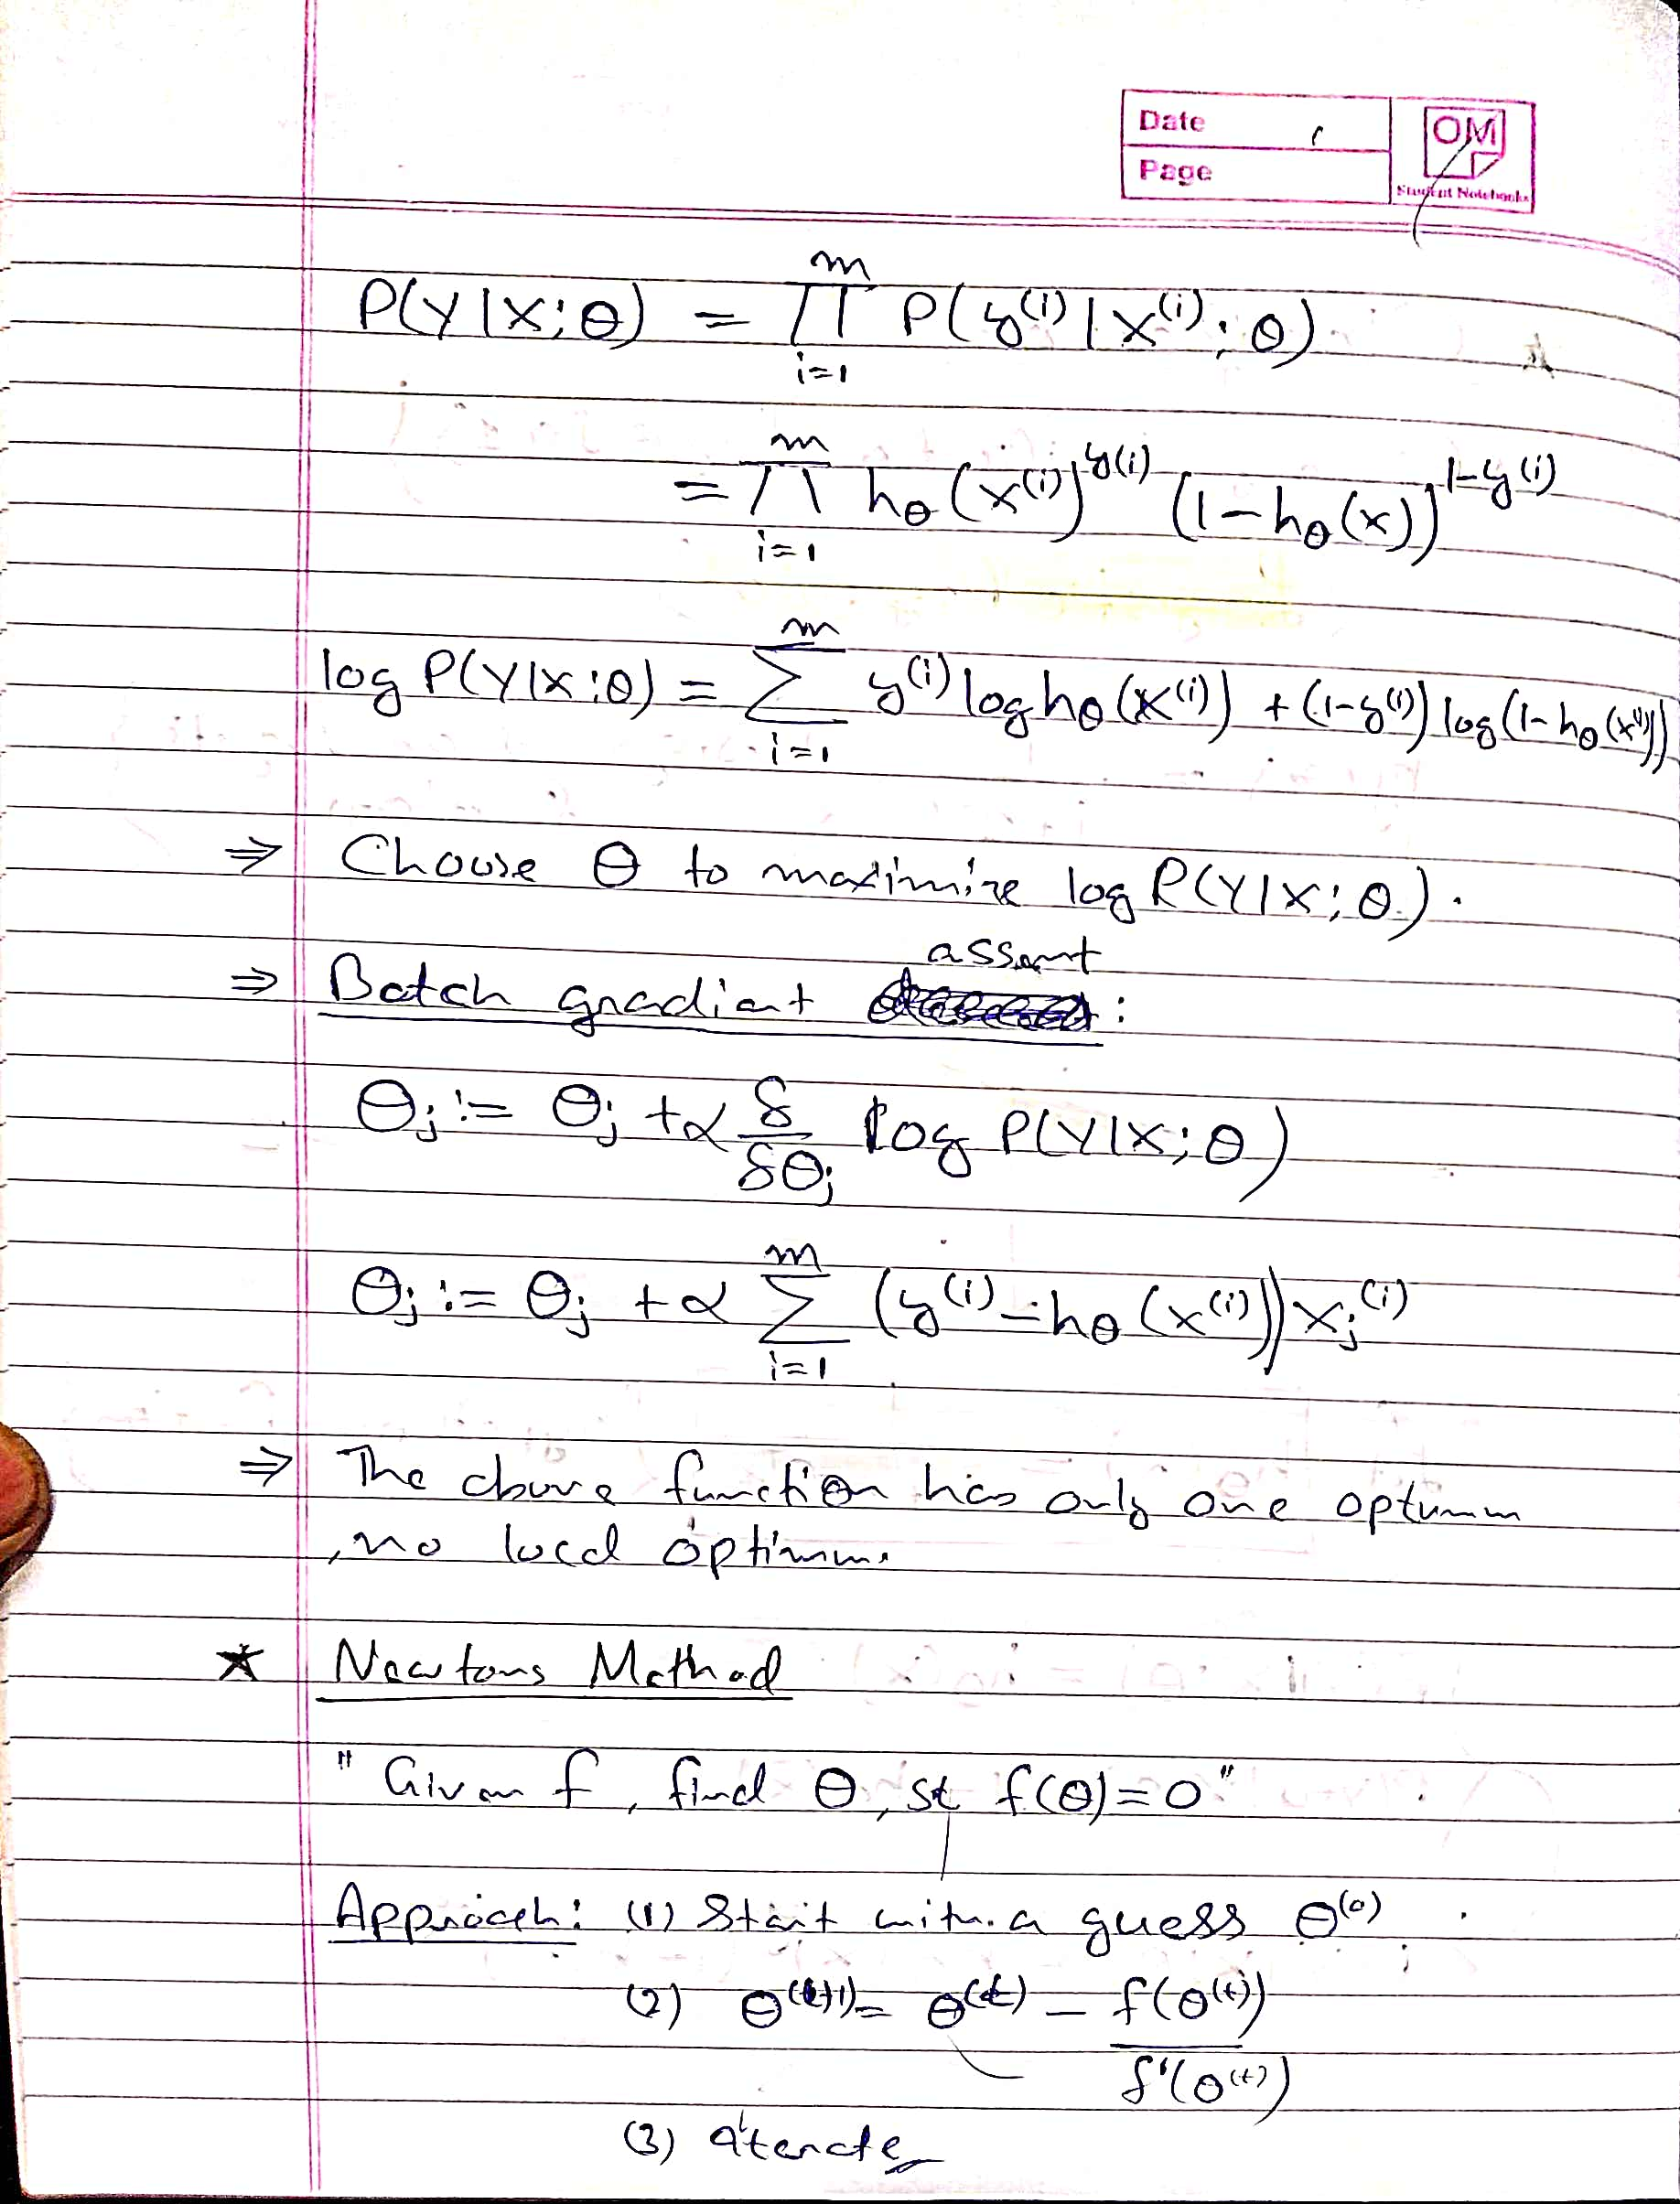 Date
OM
Page
Student Notebooks
P(Y|X;θ) = ∏_{i=1}^{m} P(y^{(i)} | x^{(i)}; θ)
= ∏_{i=1}^{m} h_θ(x^{(i)})^{y^{(i)}} (1-h_θ(x))^{1-y^{(i)}}
log P(Y|X;θ) = Σ_{i=1}^{m} y^{(i)} log h_θ(x^{(i)}) + (1-y^{(i)}) log(1-h_θ(x^{(i)}))
⇒ Choose θ to maximize log P(Y|X;θ).
⇒ Batch gradient assent :
θ_j := θ_j + α δ/δθ_j log P(Y|X;θ)
θ_j := θ_j + α Σ_{i=1}^{m} (y^{(i)} - h_θ(x^{(i)})) x_j^{(i)}
⇒ The above function has only one optimum
, no local optimum.
★ Newtons Method
"Given f, find θ, st f(θ)=0"
Approach: (1) Start with a guess θ^{(0)}
(2) θ^{(t+1)} = θ^{(t)} - f(θ^{(t)}) / f'(θ^{(t)})
(3) iterate